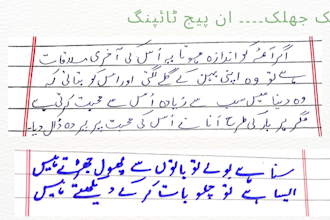 ک جھلک.... ان پیج ٹائپنگ
اگر اَعمر کو اندازہ ہوتا یہ اُس کی آخری ملاقات
ہے تو وہ اپنی بہن کے گلے لگتی اور اس کو بتاتی کہ
وہ دنیا میں سب سے زیادہ اُس سے محبت کرتی ہے
مگر ہر بار کی طرح اَنا نے اُس کی محبت پر پردہ ڈال دیا۔
سنا ہے بولے تو باتوں سے پھول جھڑتے ہیں
ایسا ہے تو چلو بات کر کے دیکھتے ہیں